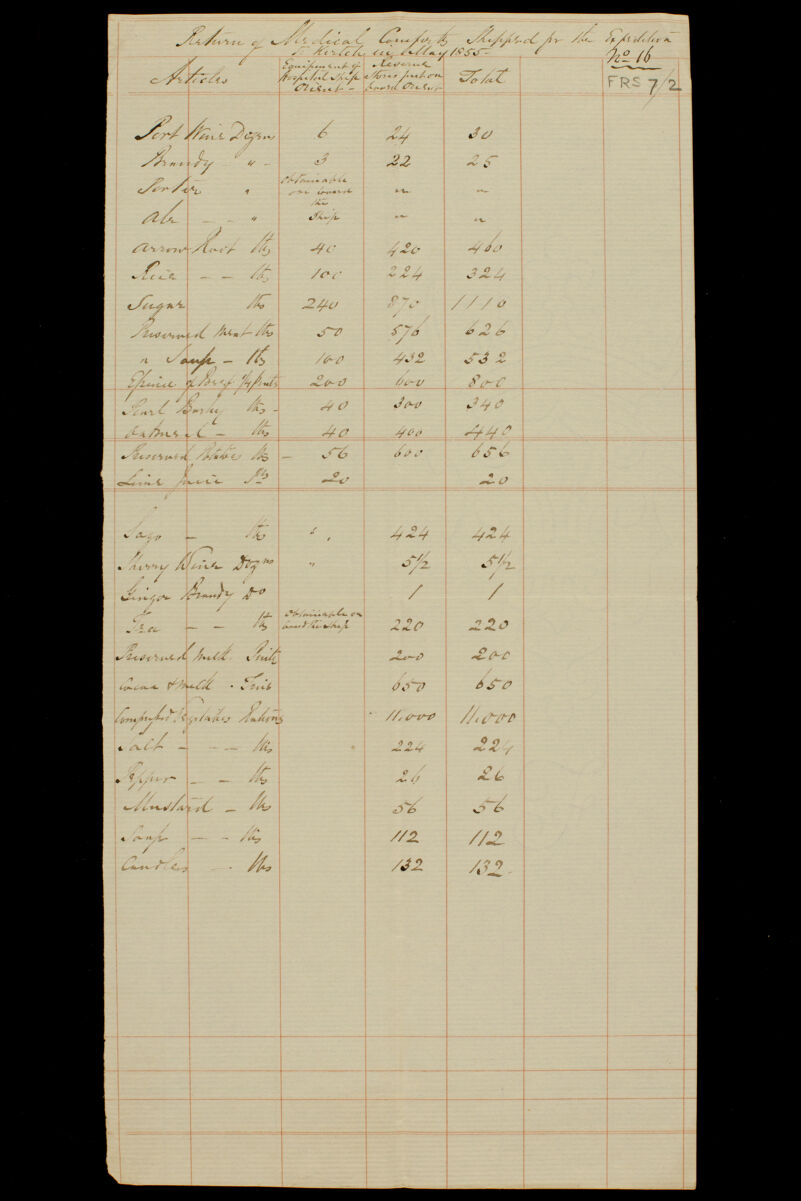 Return of Medical Comforts Shipped for the Expedition
to Kertch in May 1855
No 16
FRS 7/2
Articles Equipment of Hospital Ship Orient Reserve Stores put on board Orient Total
Port Wine Dozen 6 24 30
Brandy - " - 3 22 25
Porter " Obtainable on board the Ship " "
Ale - - " " "
Arrow Root lbs 40 420 460
Rice - - lbs 100 224 324
Sugar lbs 240 870 1110
Preserved Meat lbs 50 576 626
" Soup - lbs 100 432 532
Essence of Beef 1/4 Pints 200 600 800
Pearl Barley lbs - 40 300 340
Oatmeal - lbs 40 400 440
Preserved Potatoes lbs - 56 600 656
Lime Juice 20 20
Sago - lbs " 424 424
Sherry Wine Dozns " 5 1/2 5 1/2
Ginger Brandy Do 1 1
Tea - - lbs Obtainable on board the Ship 220 220
Preserved Milk Pints 200 200
Cocoa & Milk - Tins 650 650
Compressed Vegetables Rations 11,000 11,000
Salt - - - lbs 224 224
Pepper - - lbs 26 26
Mustard - lbs 56 56
Soap - - lbs 112 112
Candles - - lbs 132 132